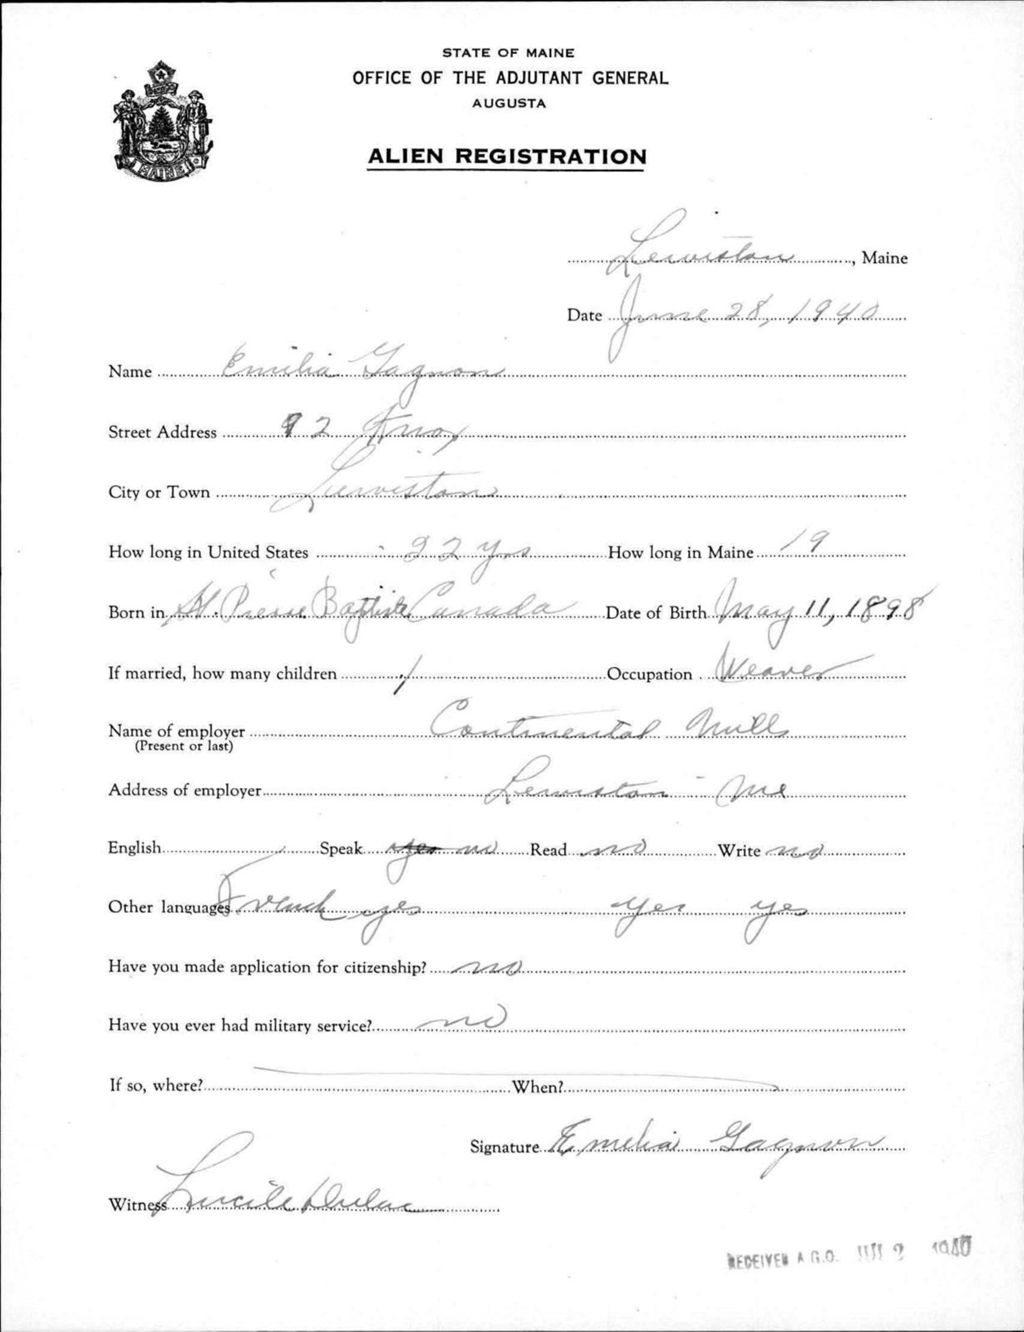 STATE OF MAINE
OFFICE OF THE ADJUTANT GENERAL
AUGUSTA
ALIEN REGISTRATION
MAINE
Lewiston, Maine
Date June 28, 1940
Name Emilia Gagnon
Street Address 92 Knox
City or Town Lewiston
How long in United States 22 yrs How long in Maine 19
Born in St. Pierre Baptiste Canada Date of Birth May 11, 1898
If married, how many children 1 Occupation Weaver
Name of employer Continental Mills
(Present or last)
Address of employer Lewiston - Me
English Speak yes no Read no Write no
Other languages French yes yes yes
Have you made application for citizenship? no
Have you ever had military service? no
If so, where? When?
Signature Emelia Gagnon
Witness Lucile Dulac
RECEIVED A.G.O. 2 1940